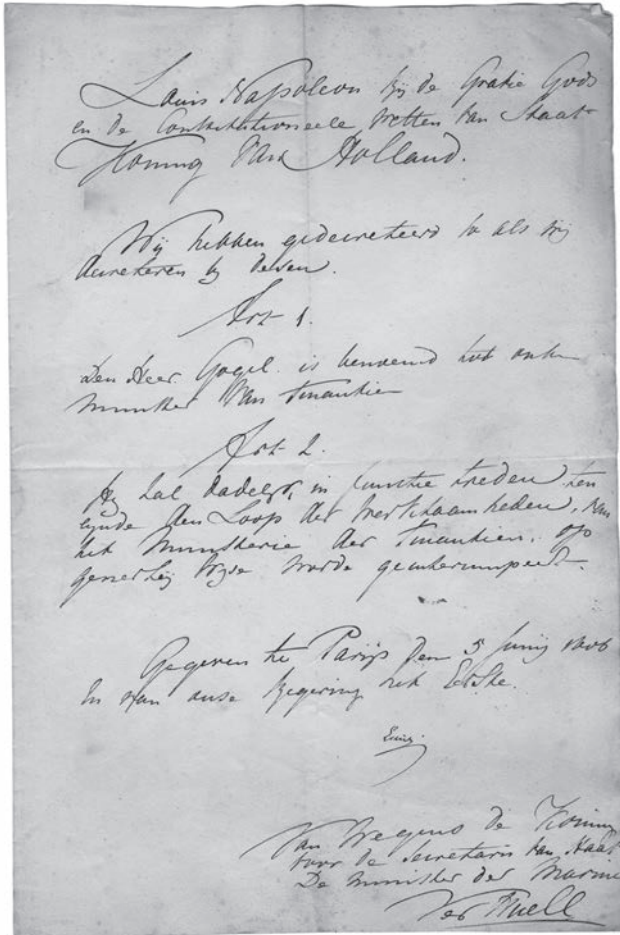 Louis Napoleon bij de Gratie Gods
en de Constitutioneele Wetten van Staat
Koning van Holland.
Wij hebben gedecreteerd so als wij
decreteren bij desen.
Art 1.
Den Heer Gogel is benoemd tot onse
Minister van Finantien
Art 2.
Hij zal dadelijk in functie treden ten
eijnde den Loop der werkzaamheden van
het Ministerie der Finantien, op
generleij wijse worde geinterrumpeert.
Gegeven te Parijs den 5 Junij 1806
En van onse Regering het Eerste.
Van Wegens de Koning
voor de Secretaris van Staat
De Minister der Marine
Ver Huell